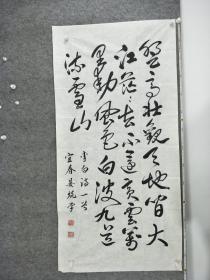 登高壮觀天地间大
江茫々去不還黄雲萬
里動風色白波九道
流雪山
李白詩一首
宜春